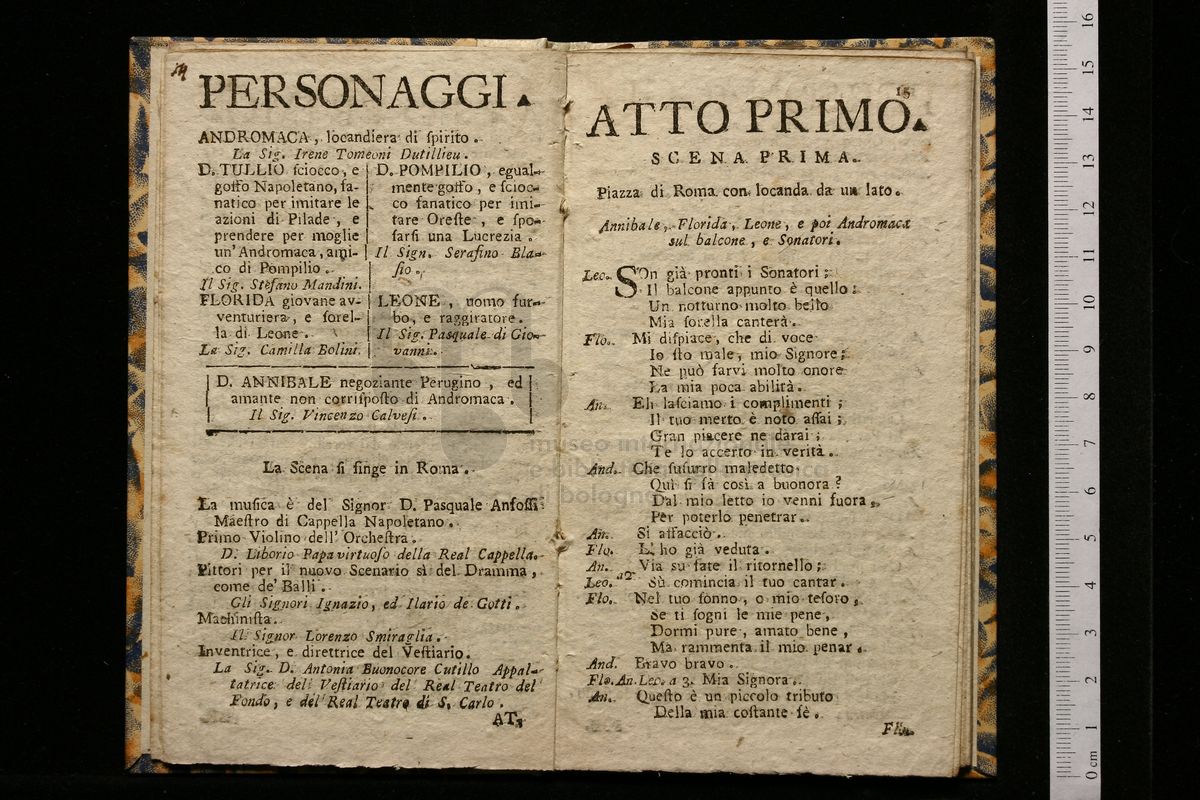 14
PERSONAGGI.
ANDROMACA, locandiera di ſpirito.
La Sig. Irene Tomeoni Dutillieu.
D. TULLIO ſciocco, e
goffo Napoletano, fa-
natico per imitare le
azioni di Pilade, e
prendere per moglie
un'Andromaca, ami-
co di Pompilio.
Il Sig. Stefano Mandini.
FLORIDA giovane av-
venturiera, e ſorel-
la di Leone.
La Sig. Camilla Bolini.
D. POMPILIO, egual-
mente goffo, e ſcioc-
co fanatico per imi-
tare Oreſte, e ſpo-
ſarſi una Lucrezia.
Il Sign. Serafino Bla-
ſio.
LEONE, uomo fur-
bo, e raggiratore.
Il Sig. Pasquale di Gio-
vanni.
D. ANNIBALE negoziante Perugino, ed
amante non corriſpoſto di Andromaca.
Il Sig. Vincenzo Calveſi.
La Scena ſi finge in Roma.
La muſica è del Signor D. Pasquale Anfoſſi
Maeſtro di Cappella Napoletano.
Primo Violino dell'Orcheſtra.
D. Liborio Papa virtuoſo della Real Cappella.
Pittori per il nuovo Scenario sì del Dramma,
come de' Balli.
Gli Signori Ignazio, ed Ilario de Gotti.
Machiniſta.
Il Signor Lorenzo Smiraglia.
Inventrice, e direttrice del Veſtiario.
La Sig. D. Antonia Buonocore Cutillo Appal-
tatrice del Veſtiario del Real Teatro del
Fondo, e del Real Teatro di S. Carlo.
AT-
15
ATTO PRIMO.
SCENA PRIMA.
Piazza di Roma con locanda da un lato.
Annibale, Florida, Leone, e poi Andromaca
sul balcone, e Sonatori.
Leo. SOn già pronti i Sonatori;
Il balcone appunto è quello:
Un notturno molto bello
Mia ſorella canterà.
Flo. Mi diſpiace, che di voce
Io ſto male, mio Signore;
Ne può farvi molto onore
La mia poca abilità.
An. Eh laſciamo i complimenti;
Il tuo merto è noto aſſai;
Gran piacere ne darai;
Te lo accerto in verità.
And. Che ſuſurro maledetto
Quì ſi fà così a buonora?
Dal mio letto io venni fuora,
Per poterlo penetrar.
An. Si affacciò.
Flo. L'ho già veduta.
An. Via su fate il ritornello;
Leo. a2 Sù comincia il tuo cantar.
Flo. Nel tuo ſonno, o mio teſoro,
Se ti ſogni le mie pene,
Dormi pure, amato bene,
Ma rammenta il mio penar.
And. Bravo bravo.
Flo. An. Leo. a 3. Mia Signora.
An. Queſto è un piccolo tributo
Della mia coſtante fè.
Flo.
museo internazionale
e biblioteca della musica
di bologna
0 cm 1 2 3 4 5 6 7 8 9 10 11 12 13 14 15 16